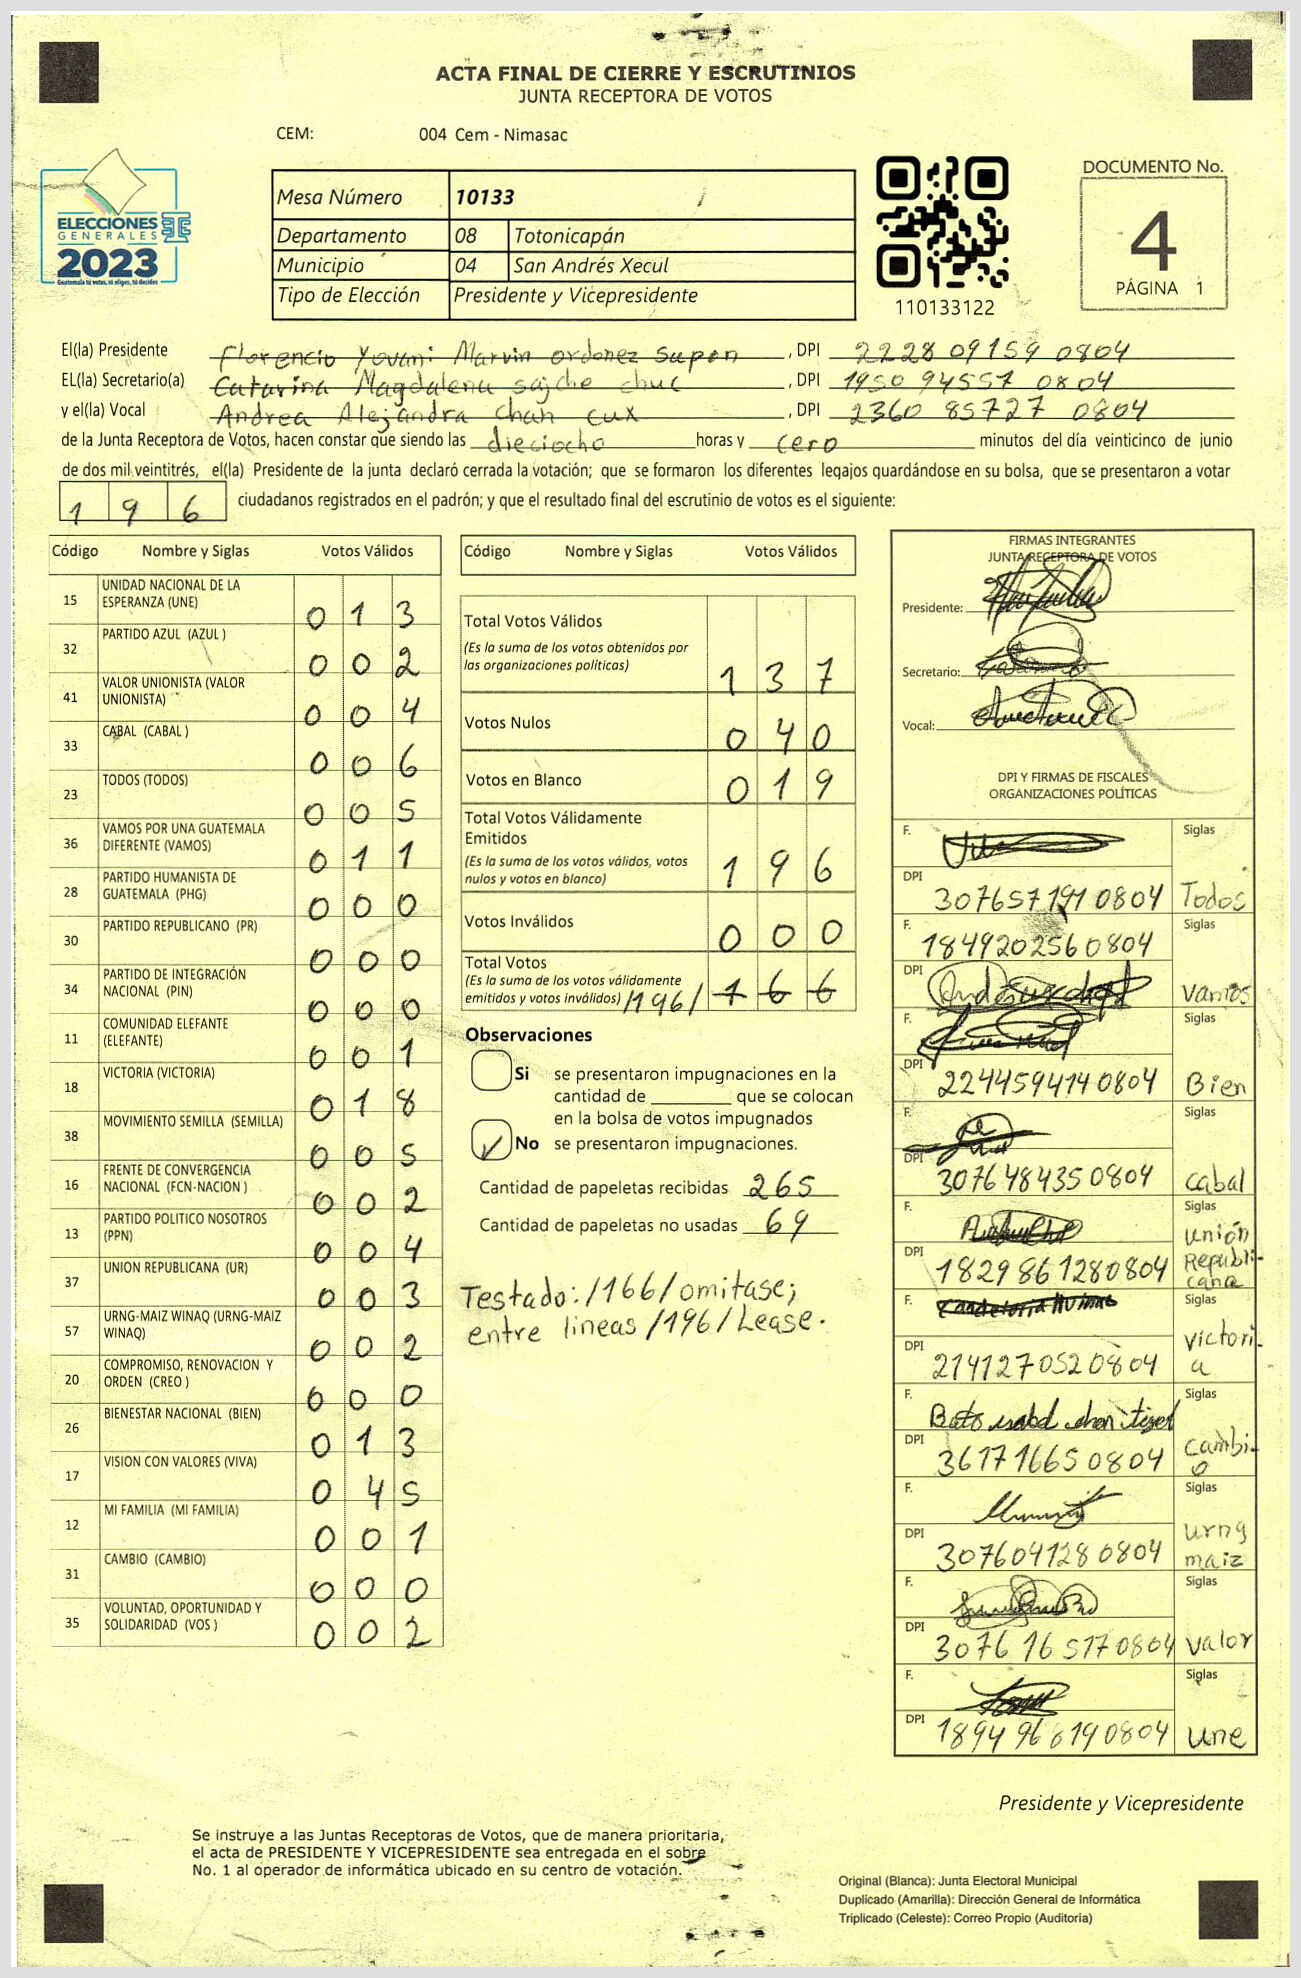 ACTA FINAL DE CIERRE Y ESCRUTINIOS
JUNTA RECEPTORA DE VOTOS
CEM: 004 Cem - Nimasac
ELECCIONES
GENERALES
2023
Guatemala tú votas, tú eliges, tú decides
Mesa Número 10133
Departamento 08 Totonicapán
Municipio 04 San Andrés Xecul
Tipo de Elección Presidente y Vicepresidente
110133122
DOCUMENTO No.
4
PÁGINA 1
El(la) Presidente Florencio Yovani Marvin ordonez supon , DPI 2228 09159 0804
EL(la) Secretario(a) Catarina Magdalena sajche chuc , DPI 1950 94557 0804
y el(la) Vocal Andrea Alejandra chan cux , DPI 2360 85727 0804
de la Junta Receptora de Votos, hacen constar que siendo las dieciocho horas y cero minutos del día veinticinco de junio
de dos mil veintitrés, el(la) Presidente de la junta declaró cerrada la votación; que se formaron los diferentes legajos guardándose en su bolsa, que se presentaron a votar
196 ciudadanos registrados en el padrón; y que el resultado final del escrutinio de votos es el siguiente:
Código Nombre y Siglas Votos Válidos
15 UNIDAD NACIONAL DE LA ESPERANZA (UNE) 013
32 PARTIDO AZUL (AZUL ) 002
41 VALOR UNIONISTA (VALOR UNIONISTA) 004
33 CABAL (CABAL ) 006
23 TODOS (TODOS) 005
36 VAMOS POR UNA GUATEMALA DIFERENTE (VAMOS) 011
28 PARTIDO HUMANISTA DE GUATEMALA (PHG) 000
30 PARTIDO REPUBLICANO (PR) 000
34 PARTIDO DE INTEGRACIÓN NACIONAL (PIN) 000
11 COMUNIDAD ELEFANTE (ELEFANTE) 001
18 VICTORIA (VICTORIA) 018
38 MOVIMIENTO SEMILLA (SEMILLA) 005
16 FRENTE DE CONVERGENCIA NACIONAL (FCN-NACION ) 002
13 PARTIDO POLITICO NOSOTROS (PPN) 004
37 UNION REPUBLICANA (UR) 003
57 URNG-MAIZ WINAQ (URNG-MAIZ WINAQ) 002
20 COMPROMISO, RENOVACION Y ORDEN (CREO ) 000
26 BIENESTAR NACIONAL (BIEN) 013
17 VISION CON VALORES (VIVA) 045
12 MI FAMILIA (MI FAMILIA) 001
31 CAMBIO (CAMBIO) 000
35 VOLUNTAD, OPORTUNIDAD Y SOLIDARIDAD (VOS ) 002
Código Nombre y Siglas Votos Válidos
Total Votos Válidos
(Es la suma de los votos obtenidos por
las organizaciones políticas) 137
Votos Nulos 040
Votos en Blanco 019
Total Votos Válidamente
Emitidos
(Es la suma de los votos válidos, votos
nulos y votos en blanco) 196
Votos Inválidos 000
Total Votos
(Es la suma de los votos válidamente
emitidos y votos inválidos) /196/ 166
Observaciones
Si se presentaron impugnaciones en la
cantidad de ________ que se colocan
en la bolsa de votos impugnados
No se presentaron impugnaciones.
Cantidad de papeletas recibidas 265
Cantidad de papeletas no usadas 69
Testado: /166/ omitase;
entre lineas /196/ Lease.
FIRMAS INTEGRANTES
JUNTA RECEPTORA DE VOTOS
Presidente:
Secretario:
Vocal:
DPI Y FIRMAS DE FISCALES
ORGANIZACIONES POLÍTICAS
F. Siglas
DPI 307657191 0804 Todos
F. 1849202560804 Siglas
DPI vamos
F. Siglas
DPI 2244594140804 Bien
F. Siglas
DPI 3076484350804 cabal
F. Siglas
DPI 1829861280804 unión Republi-cana
F. Siglas
DPI 2141270520804 victori-a
F. Siglas
DPI 3617716650804 cambi-o
F. Siglas
DPI 3076041280804 urng maiz
F. Siglas
DPI 3076165170804 valor
F. Siglas
DPI 1894968190804 une
Presidente y Vicepresidente
Se instruye a las Juntas Receptoras de Votos, que de manera prioritaria,
el acta de PRESIDENTE Y VICEPRESIDENTE sea entregada en el sobre
No. 1 al operador de informática ubicado en su centro de votación.
Original (Blanca): Junta Electoral Municipal
Duplicado (Amarilla): Dirección General de Informática
Triplicado (Celeste): Correo Propio (Auditoría)